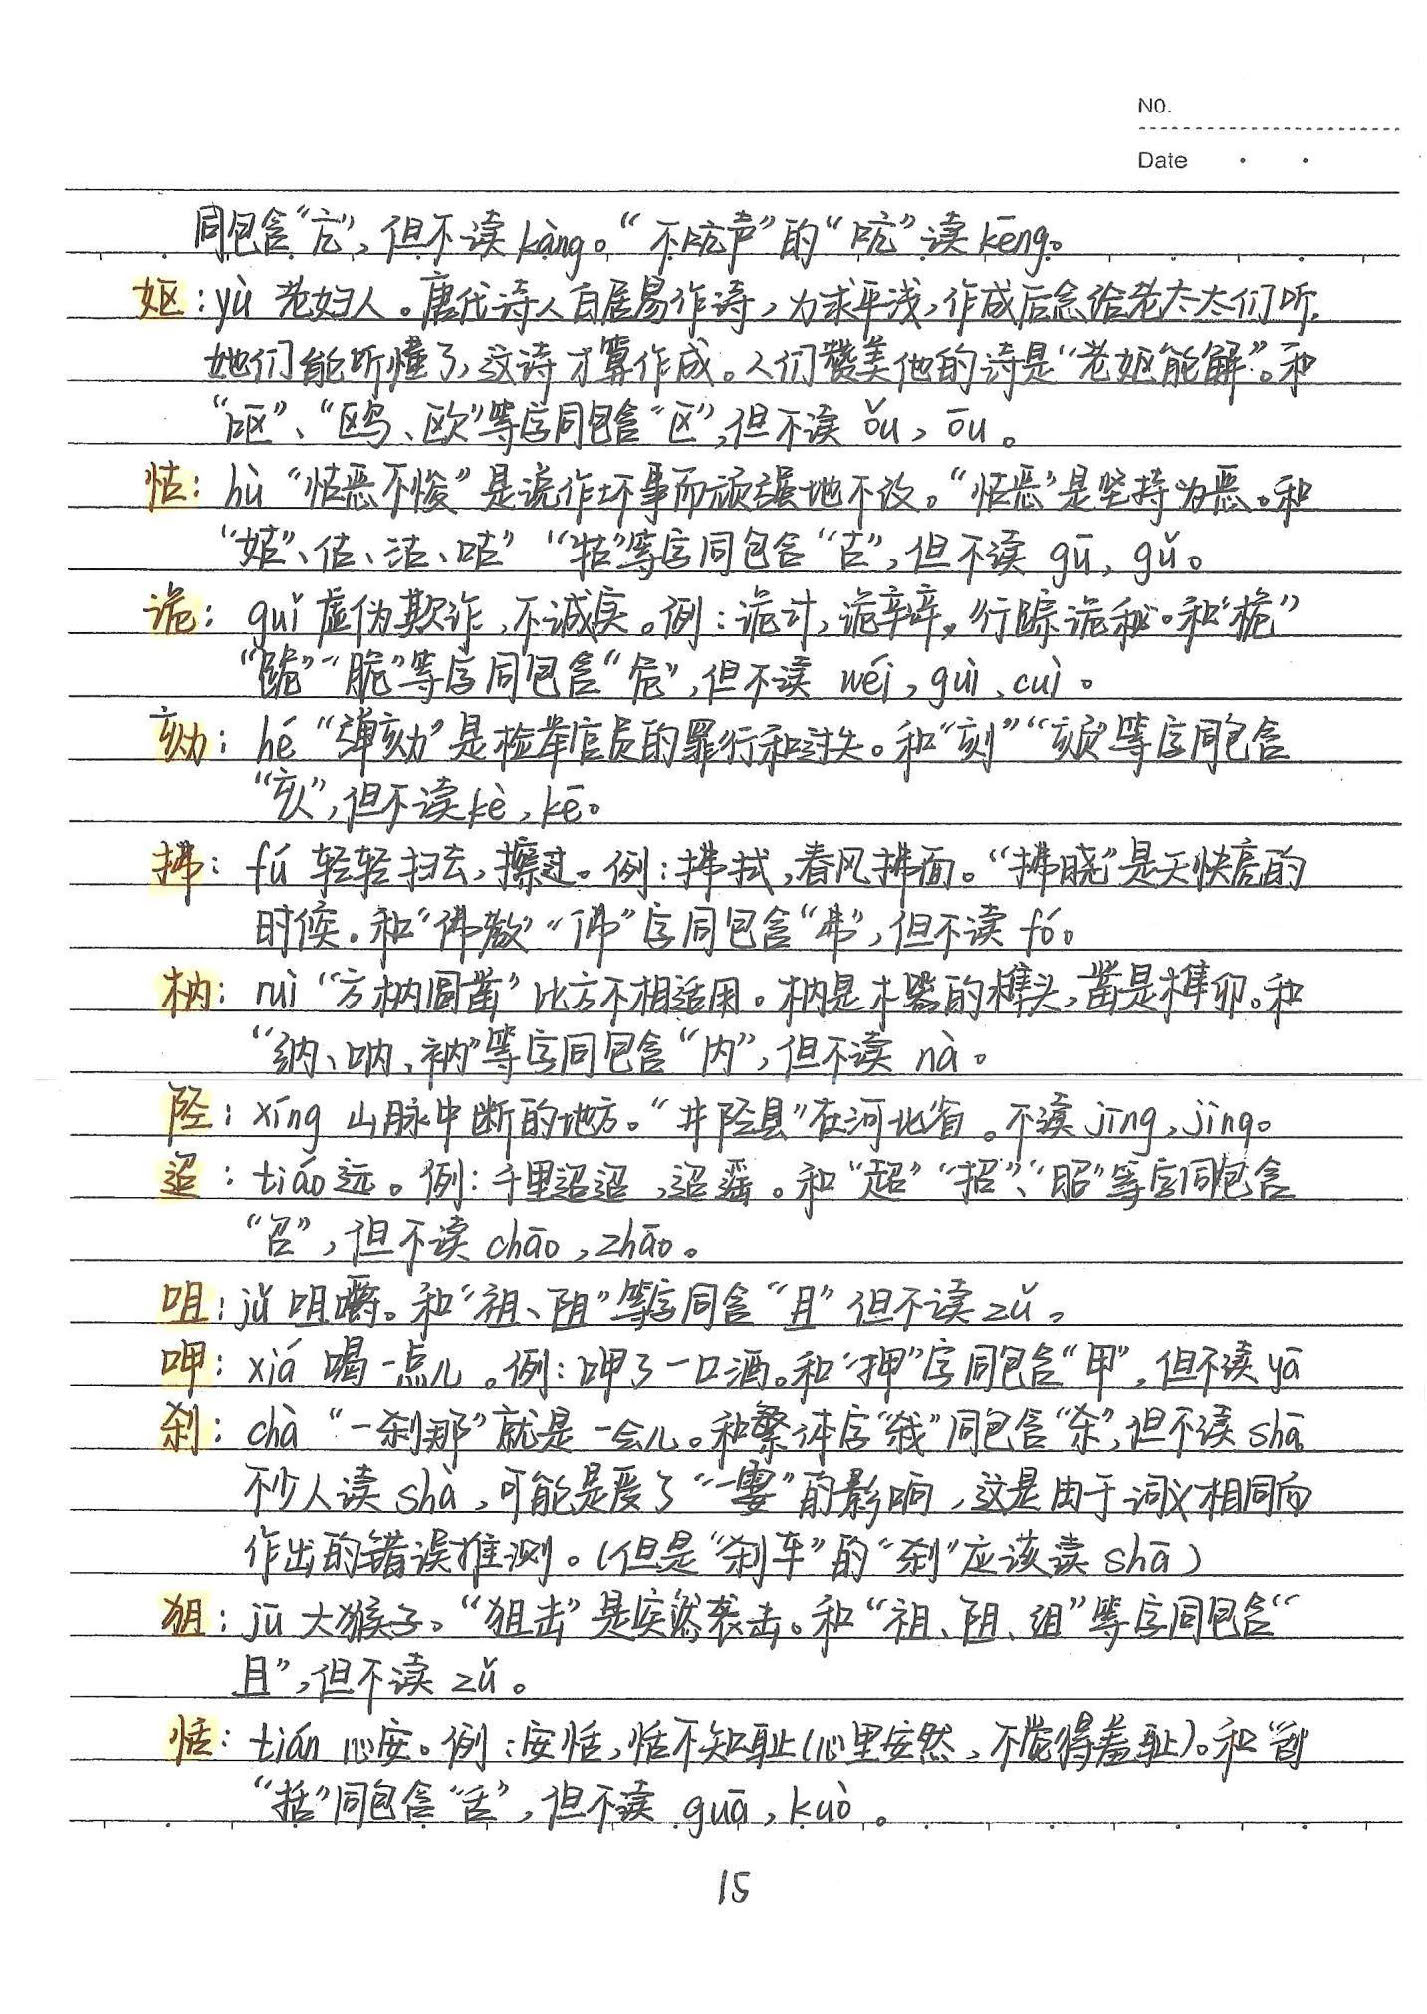 NO.
Date
同包含“亢”,但不读kàng。“不吭声”的“吭”读kēng。
妪:yù 老妇人。唐代诗人白居易作诗,为求平浅,作成后念给老太太们听,
她们能听懂了,这诗才算作成。人们赞美他的诗是“老妪能解”。和
“呕”、“鸥、欧”等字同包含“区”,但不读 ǒu, ōu。
怙:hù “怙恶不悛”是说作坏事而顽强地不改。“怙恶”是坚持为恶。和
“姑”、估、沽、咕”“牯”等字同包含“古”,但不读 gū, gǔ。
诡:guǐ 虚伪欺诈,不诚实。例:诡计,诡辩,行踪诡秘。和“桅”
“跪”“脆”等字同包含“危”,但不读 wéi, guì, cuì。
劾:hé “弹劾”是检举官员的罪行和过失。和“刻”“颏”等字同包含
“亥”,但不读kè, kē。
拂:fú 轻轻扫去,擦过。例:拂拭,春风拂面。“拂晓”是天快亮的
时候。和“佛教”“佛”字同包含“弗”,但不读 fó。
枘:ruì “方枘圆凿”比方不相适用。枘是木器的榫头,凿是榫卯。和
“纳、呐,衲”等字同包含“内”,但不读 nà。
陉:xíng 山脉中断的地方。“井陉县”在河北省。不读jīng, jìng。
迢:tiáo远。例:千里迢迢,迢遥。和“超”“招”、“昭”等字同包含
“召”,但不读 chāo, zhāo。
咀:jǔ 咀嚼。和“祖、阻”等字同含“且”但不读zǔ。
呷:xiá 喝一点儿。例:呷了一口酒。和“押”字同包含“甲”,但不读yā
刹:chà “一刹那”就是一会儿。和繁体字“殺”同包含“杀”,但不读 shā
不少人读 shà,可能是受了“一霎”的影响,这是由于词义相同而
作出的错误推测。(但是“刹车”的“刹”应该读 shā)
狙:jū 大猴子。“狙击”是突然袭击。和“祖、阻、组”等字同包含“
且”,但不读 zǔ。
恬:tián 心安。例:安恬,恬不知耻(心里安然,不觉得羞耻)。和“刮
“括”同包含“舌”,但不读 guā, kuò。
15